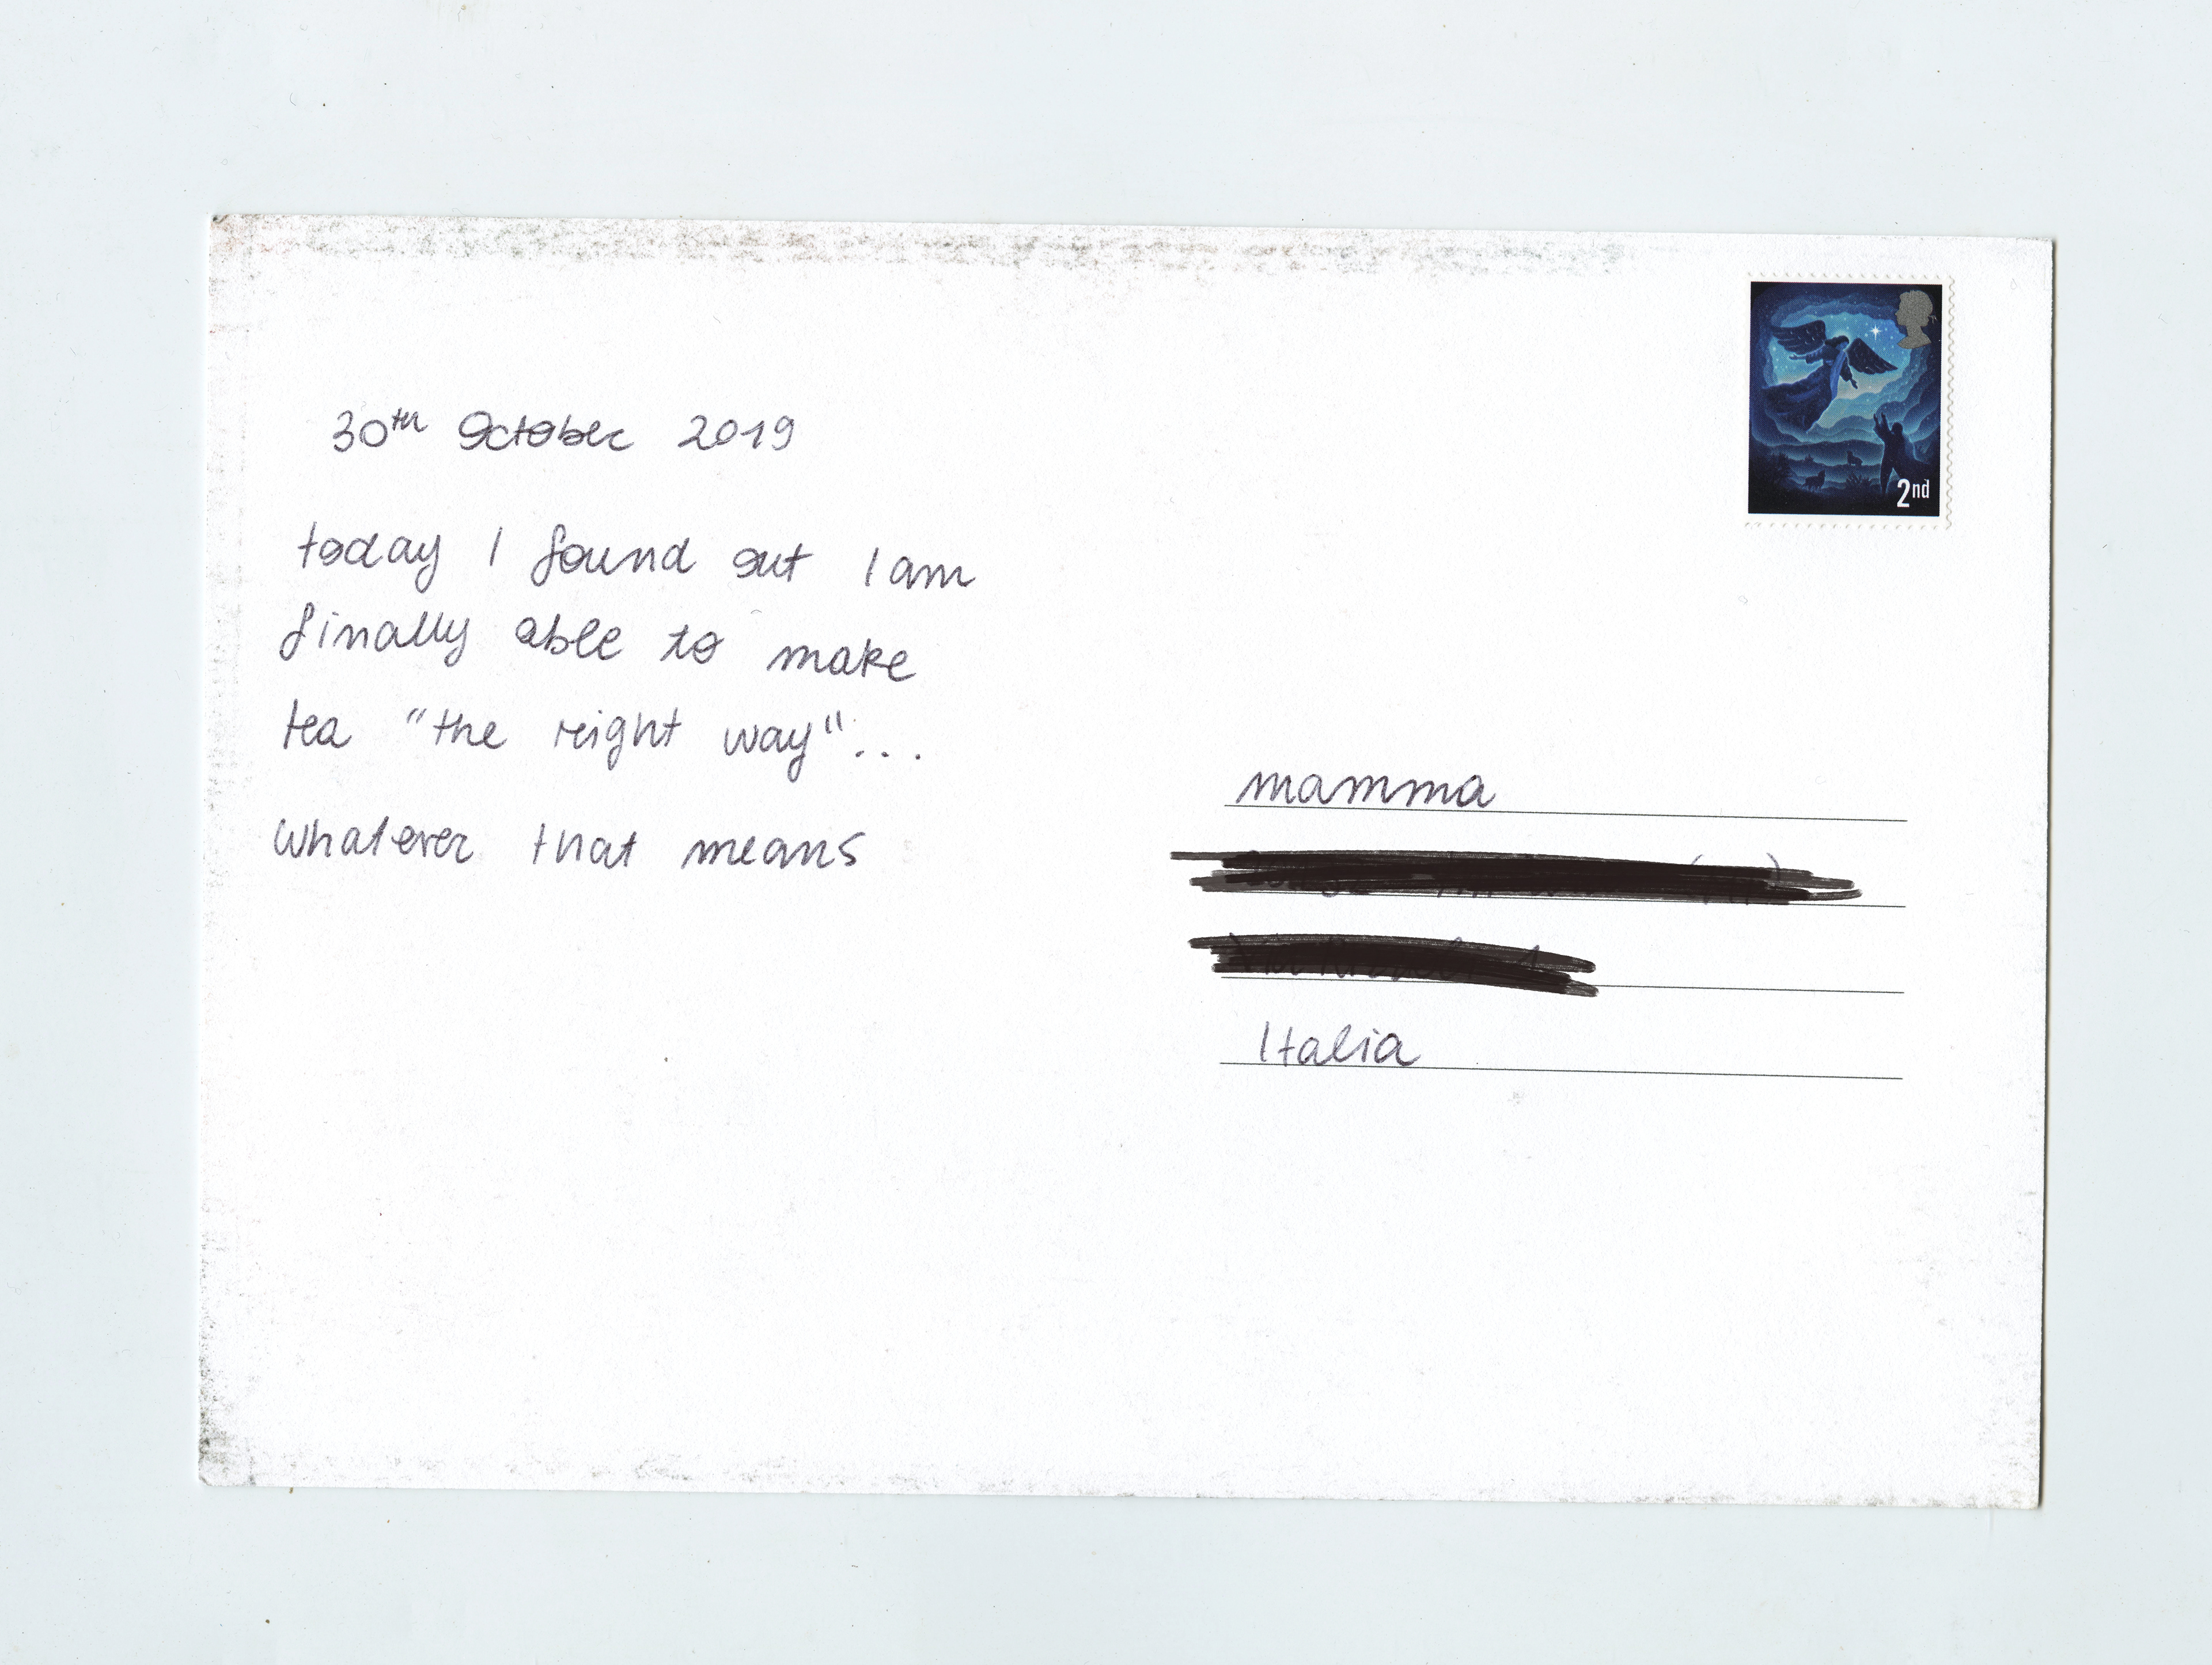 30th October 2019
today I found out I am
finally able to make
tea "the right way"...
whatever that means
2nd
mamma
Italia